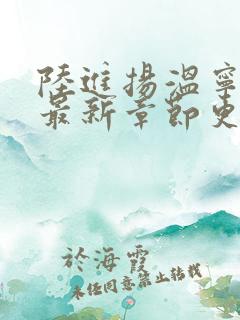 陸進揚溫寧
最新章節史
於海霞
未經同意禁止轉載